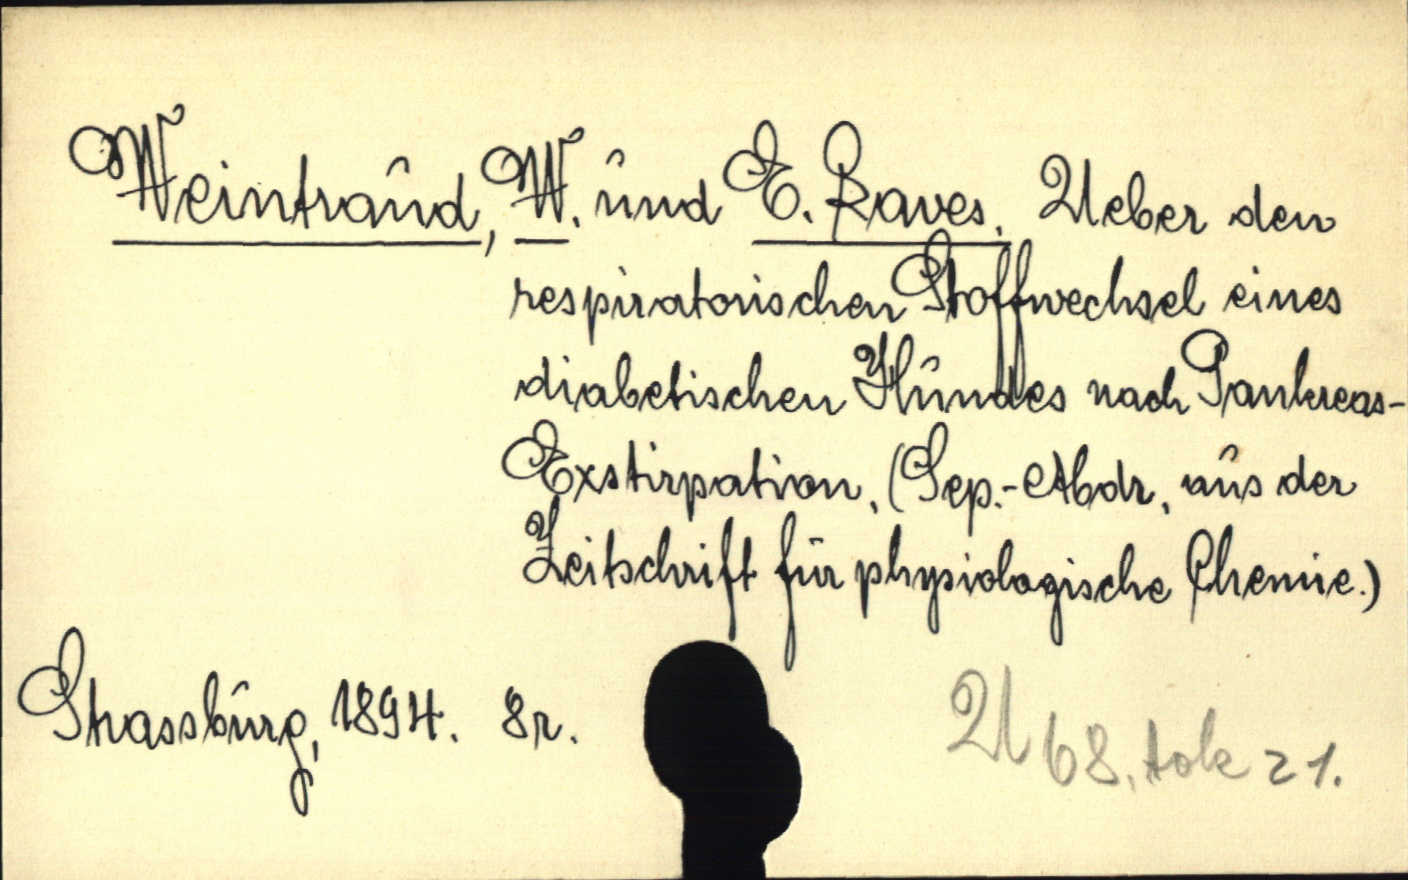 Weintraud, W. und E. Laves. Ueber den
respiratorischen Stoffwechsel eines
diabetischen Hundes nach Pankreas-
Exstirpation. (Sep.-Abdr. aus der
Zeitschrift für physiologische Chemie.)
Strassburg, 1894. 8r.
U 68. tok 21.